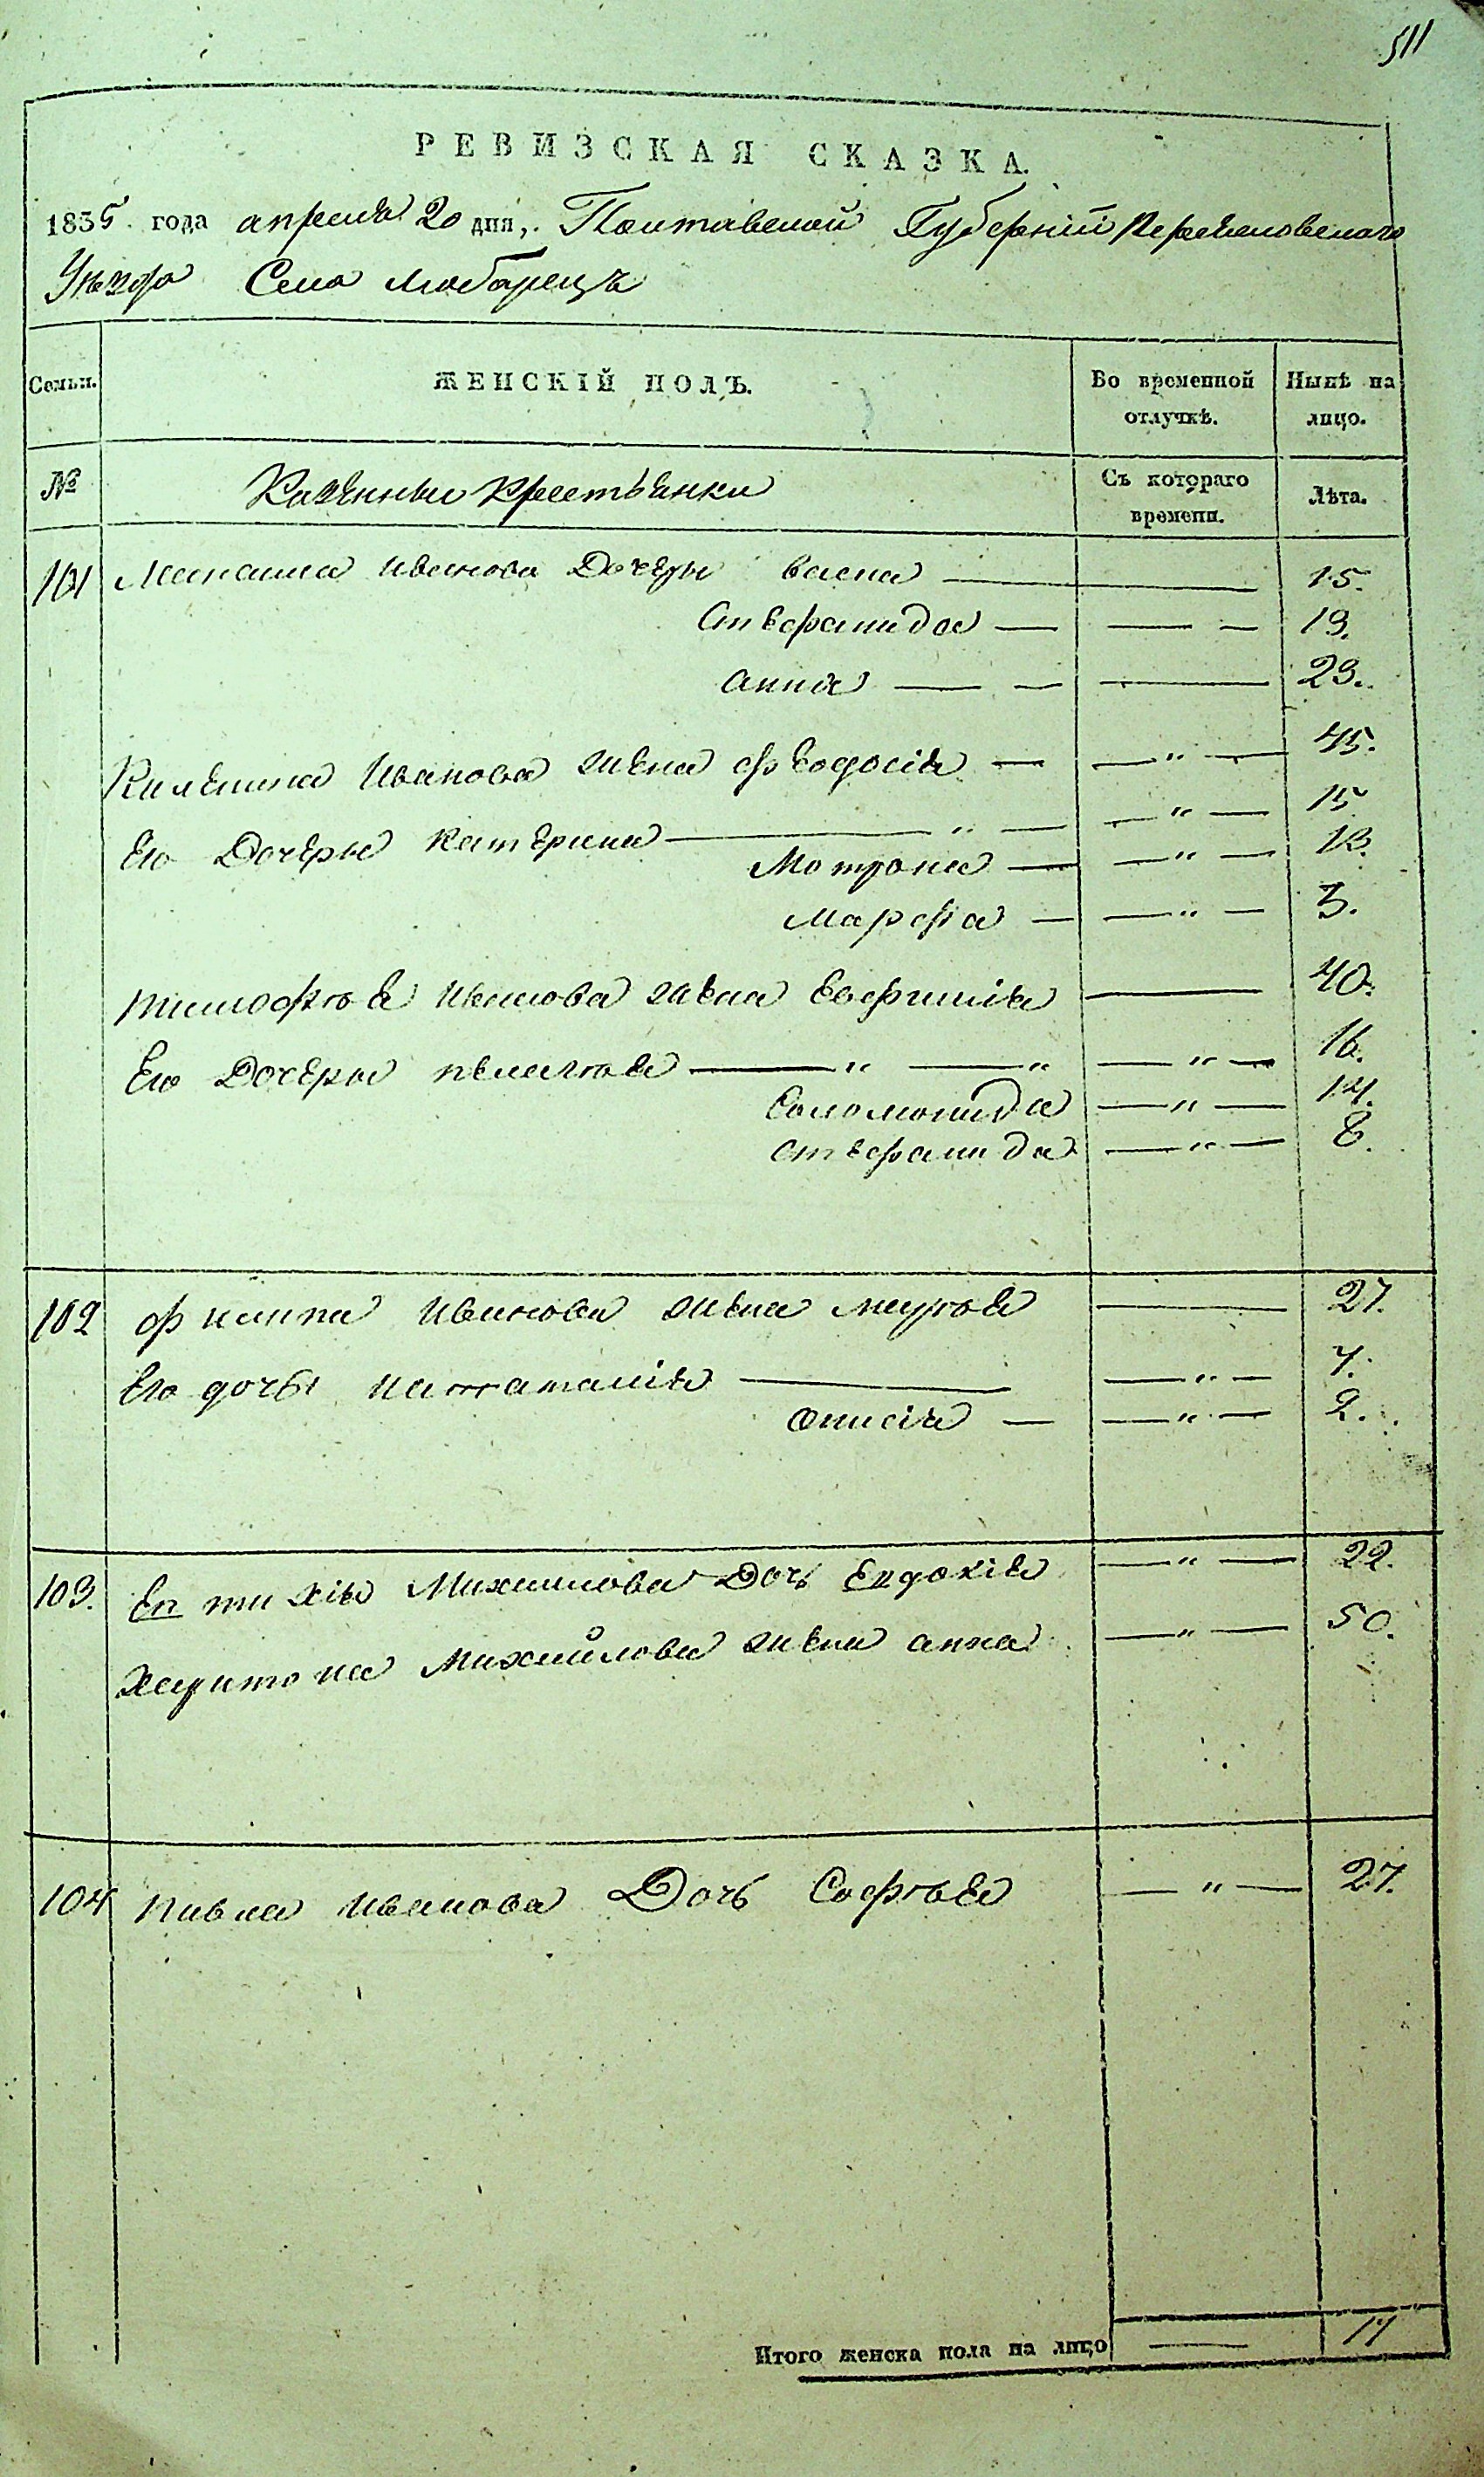 511
РЕВИЗСКАЯ СКАЗКА.
1835 года апреля 20 дня, Полтавской Губерніи Переяславскаго
Уѣзда Села Любарецъ
Семьи. ЖЕНСКІЙ ПОЛЪ. Во временной отлучкѣ. Нынѣ на лицо.
№ Казенныи крестьянки Съ котораго времени. Лѣта.
101 Иванова Дочеры — 15.
Стефанида — — — 19.
анна — — — 23.
Ивanова жена феодосія — — " — 45.
Его Дочеры катерина — " — — " — 15
Мотрона — — " — 13.
Марфа — — " — 3.
тимофѣя Иванова жена Евфимія — 40.
Его Дочеры пелагѣя — " — " — " — 16.
Соломонида — " — 14.
стефанида — " — 8.
102 филипа Иванова жена — 27.
Его дочьі наталія — — " — 4.
Онисія — — " — 2.
103. Евтихія Михаилова Дочь Евдокія — " — 22.
харитона Михайлова жена анна — " — 50.
104 павла Иванова Дочь Софѣя — " — 27.
Итого женска пола на лицо — 17